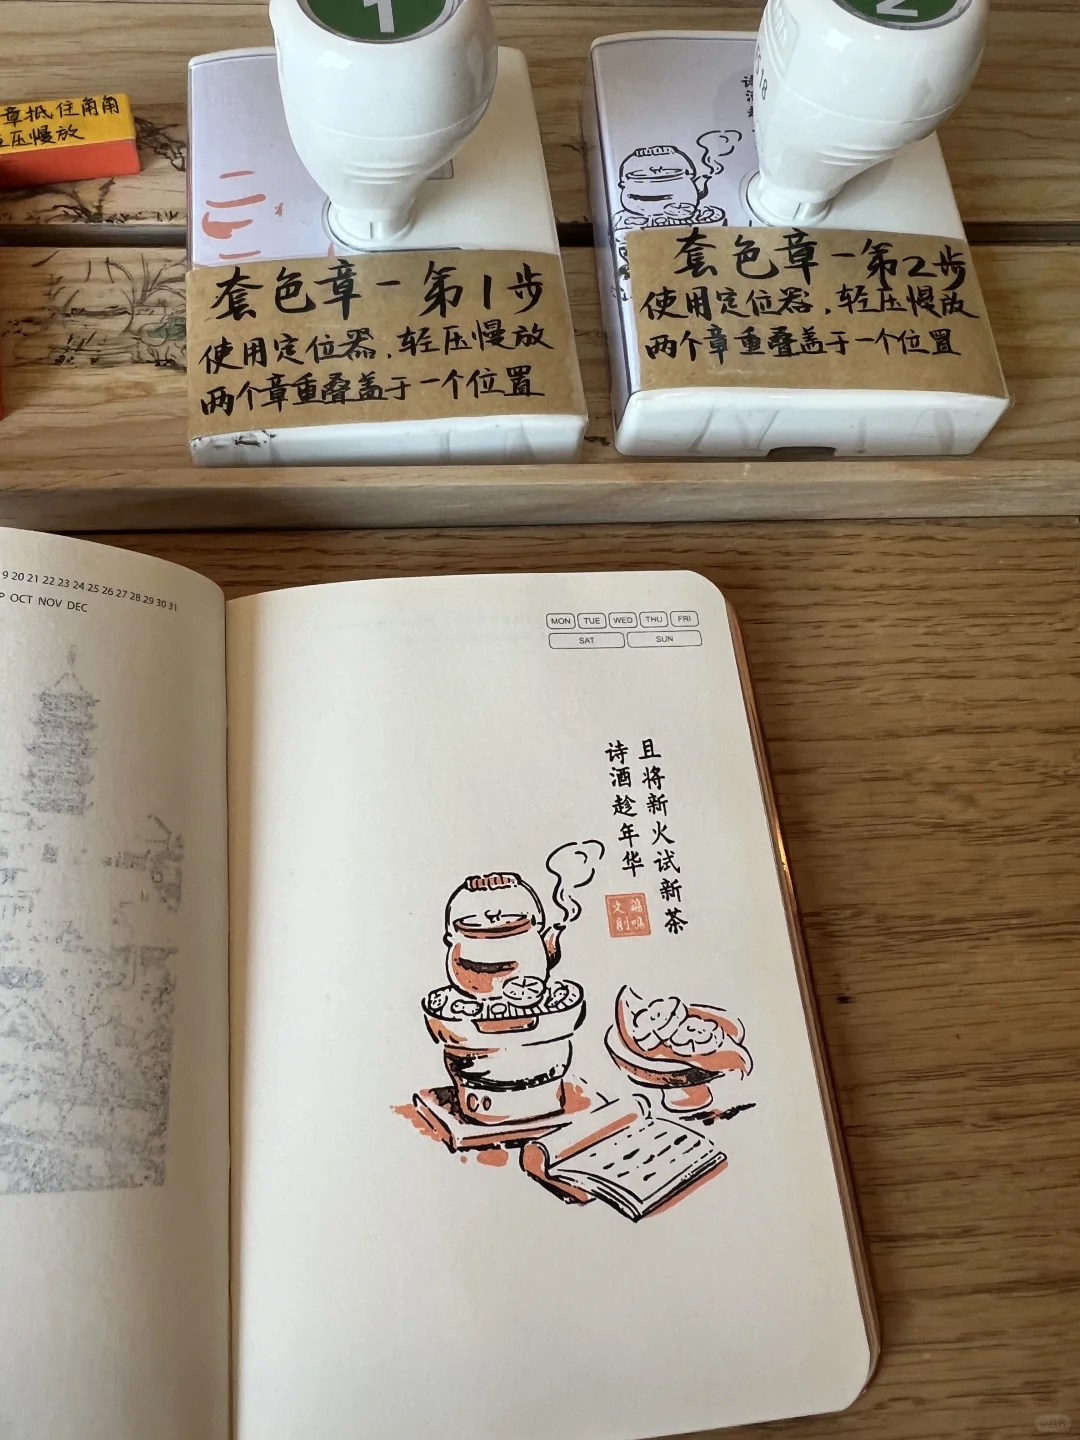 1
2
章抵住角角
压慢放
诗
酒
套色章-第1步
使用定位器,轻压慢放
两个章重叠盖于一个位置
套色章-第2步
使用定位器,轻压慢放
两个章重叠盖于一个位置
9 20 21 22 23 24 25 26 27 28 29 30 31
OCT NOV DEC
MON TUE WED THU FRI
SAT SUN
且将新火试新茶
诗酒趁年华